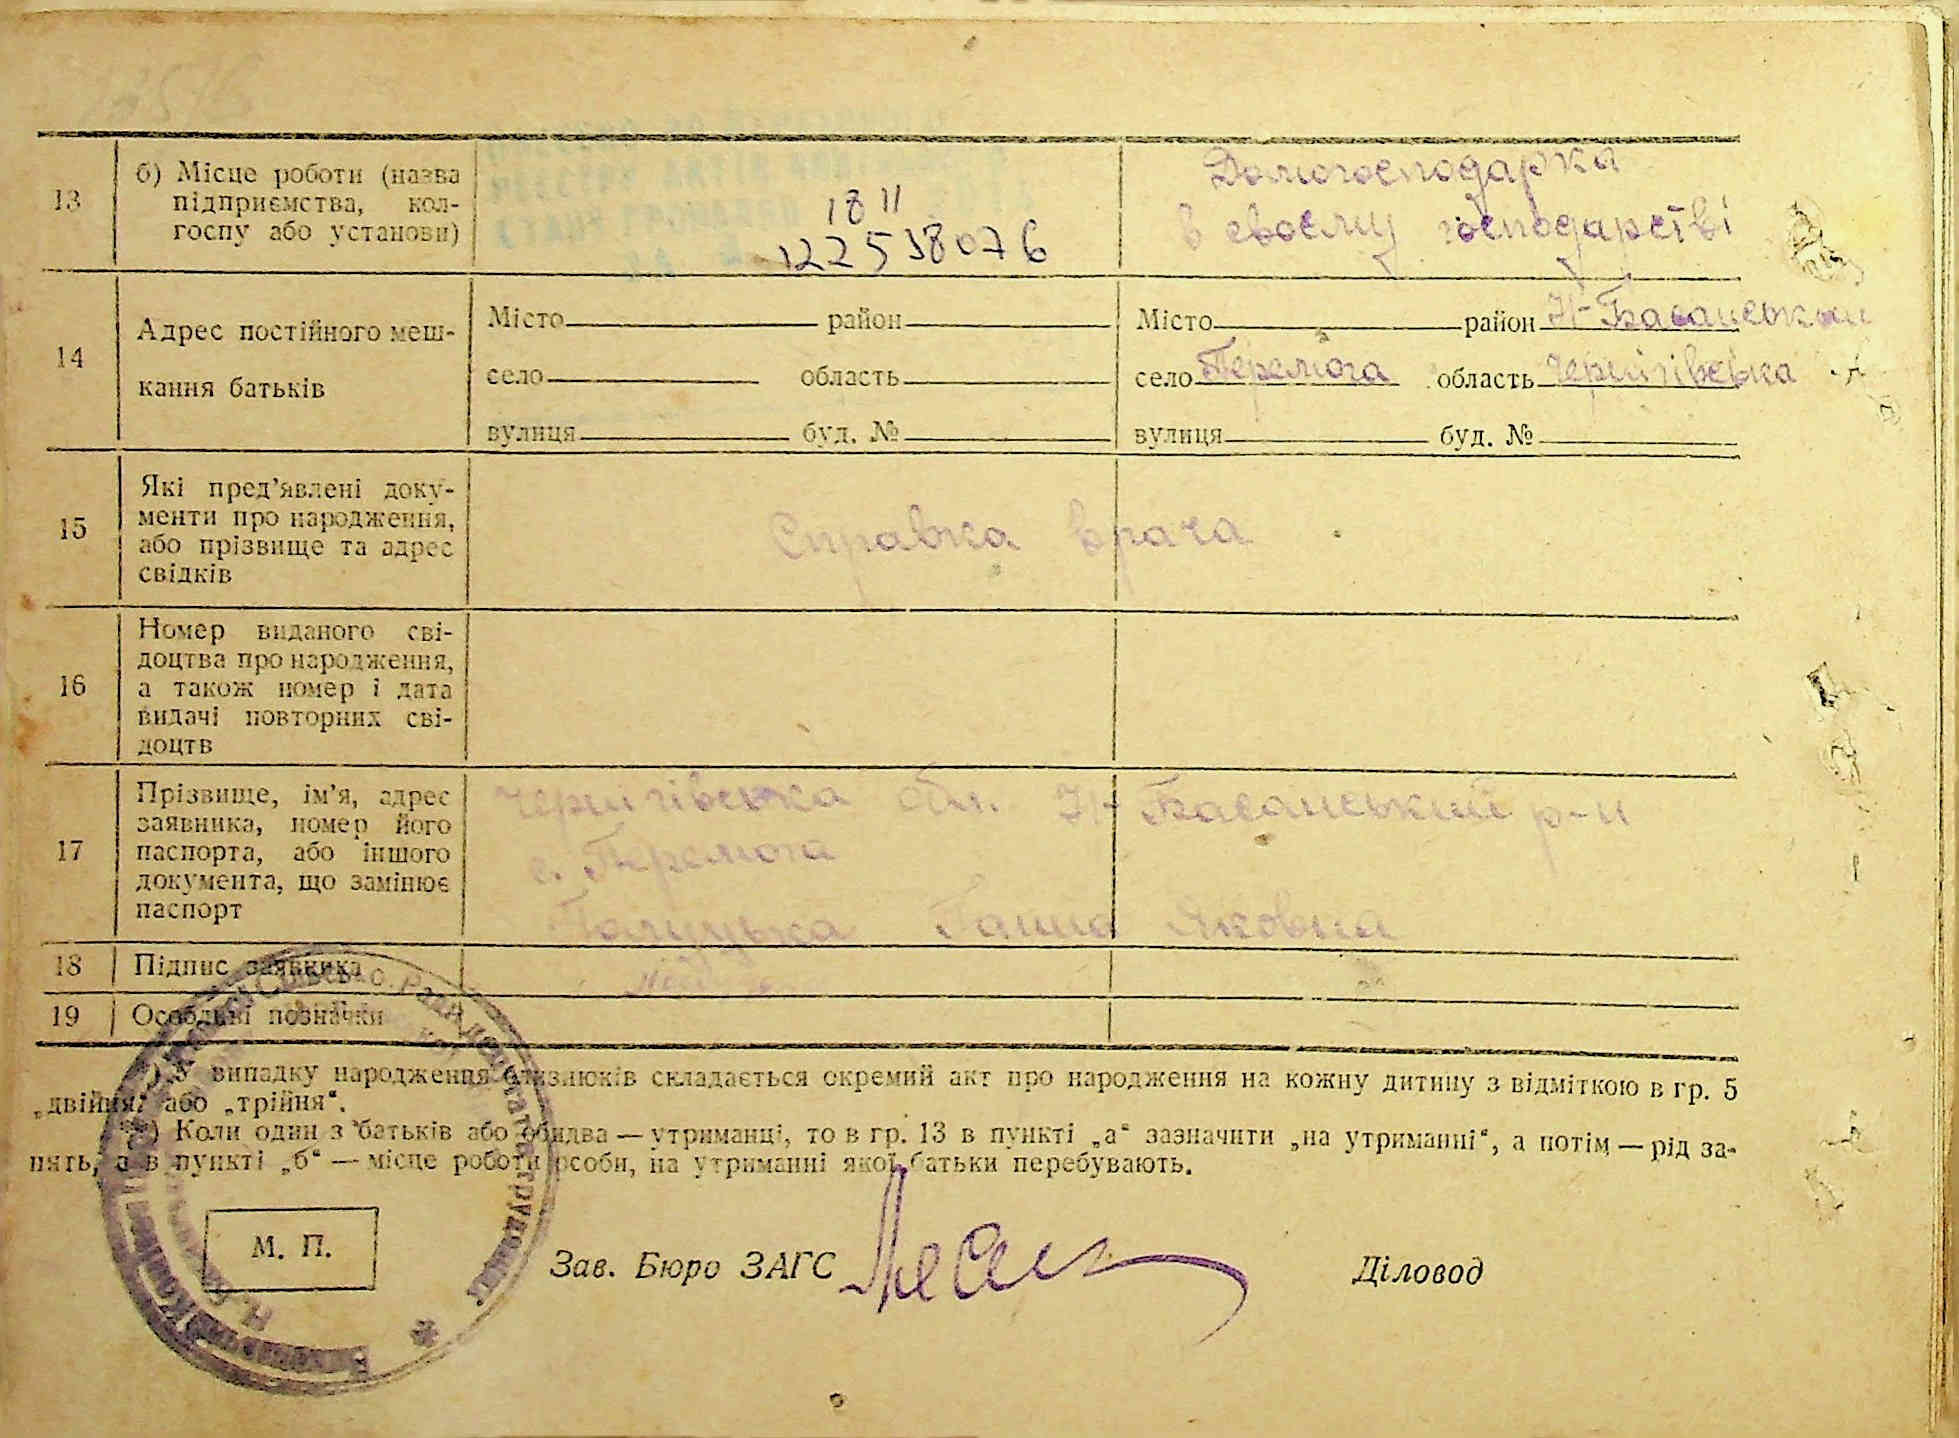 13
б) Місце роботи (назва
підприємства, кол-
госпу або установи)
18 11
122538076
Домогосподарка
в своєму господарстві
14
Адрес постійного меш-
кання батьків
Місто район
село область
вулиця буд. №
Місто район Н-Басанський
село Перемога область Чернігівська
вулиця буд. №
15
Які пред’явлені доку-
менти про народження,
або прізвище та адрес
свідків
Справка врача
16
Номер виданого сві-
доцтва про народження,
а також номер і дата
видачі повторних сві-
доцтв
17
Прізвище, ім’я, адрес
заявника, номер його
паспорта, або іншого
документа, що замінює
паспорт
Чернігівська обл. Н-Басанський р-н
с. Перемога
Ганна Яковна
18 Підпис заявника
19 Особливі позначки
*) У випадку народження близнюків складається окремий акт про народження на кожну дитину з відміткою в гр. 5
„двійня“ або „трійня“.
**) Коли один з батьків або обидва — утриманці, то в гр. 13 в пункті „а“ зазначити „на утриманні“, а потім — рід за-
нять, а в пункті „б“ — місце роботи особи, на утриманні якої батьки перебувають.
М. П.
Зав. Бюро ЗАГС
Діловод